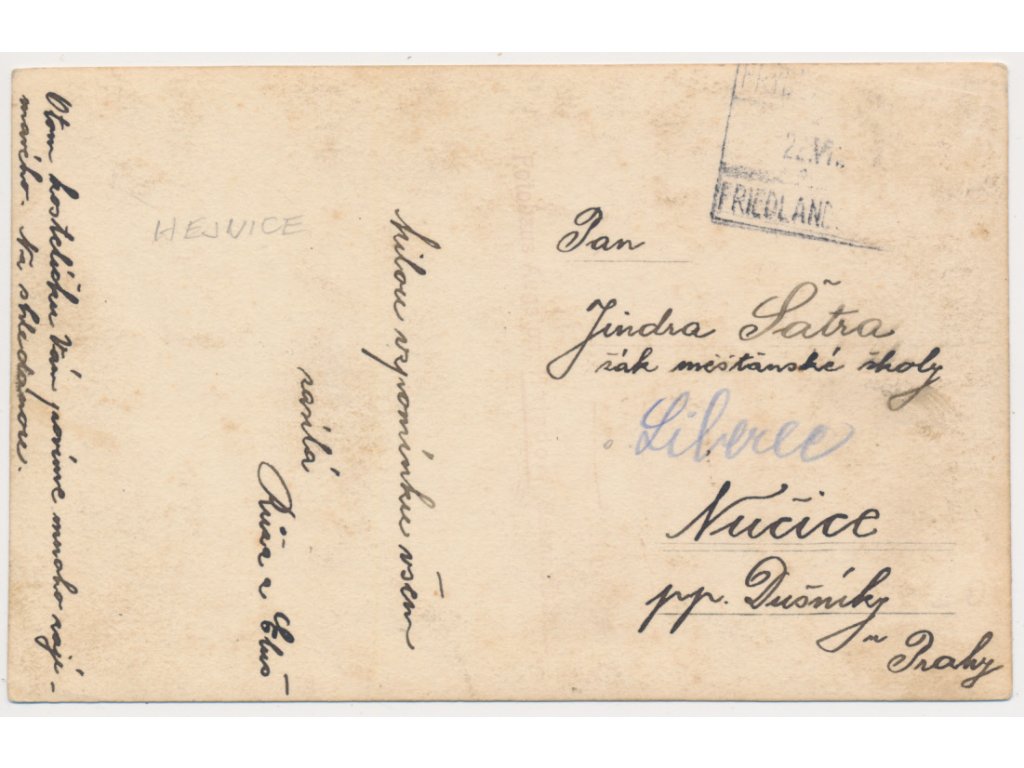 Otom hostelíčku Vám povíme mnoho zají-
mavého. Na shledanou.
HEJNICE
Milou vzpomínku všem
zasílá
Růža a
22.VII.
FRIEDLAND.
Pan
Jindra Šatra
žák měšťanské školy
Liberec
Nučice
pp. Dušníky
u Prahy